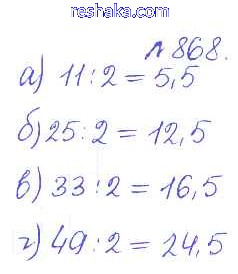 reshaka.com
№ 868.
а) 11 : 2 = 5,5
б) 25 : 2 = 12,5
в) 33 : 2 = 16,5
г) 49 : 2 = 24,5